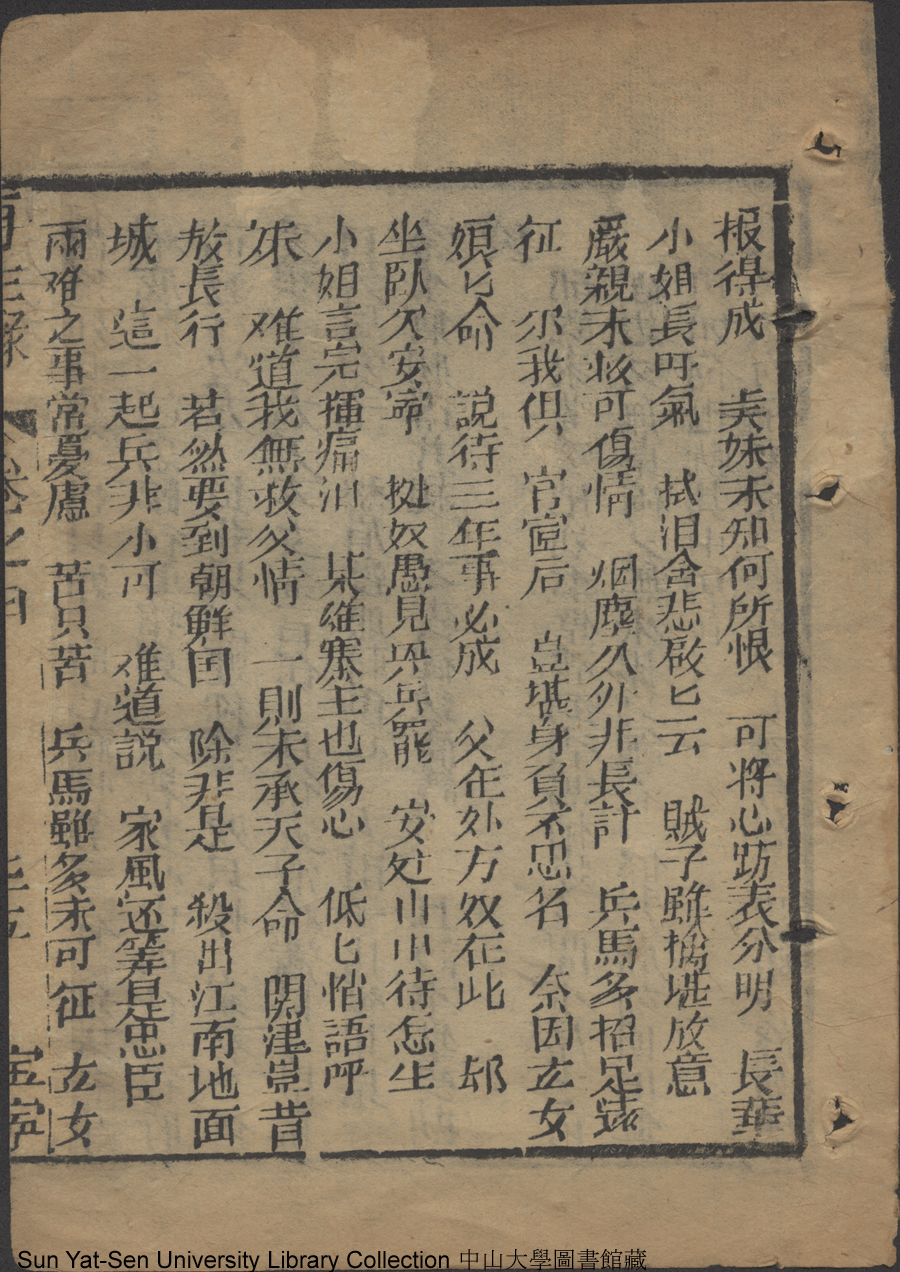 报得成 美妹未知何所恨 可将心跡表分明 長華
小姐長吁氣 拭泪含悲啟匕云 賊子雖擒堪放意
嚴親未救可傷情 烟塵久外非長計 兵馬多招足遠
征 尔我俱 官宦后 豈堪身負不忠名 奈因立女
娘匕命 説待三年事必成 父在外方奴在此 却
坐臥欠安寧 挺奴愚見界兵罷 安处山中待怎生
小姐言完揮痛泪 某雄寨主也傷心 低匕悄語呼
妹 难道我無救父情 一則未承天子命 関津豈肯
放長行 若然要到朝鮮国 除非是 殺出江南地面
城 這一起兵非小可 难道説 家風还筭是忠臣
兩难之事常憂慮 苦只苦 兵馬雖多未可征 立女
再生緣 卷之四